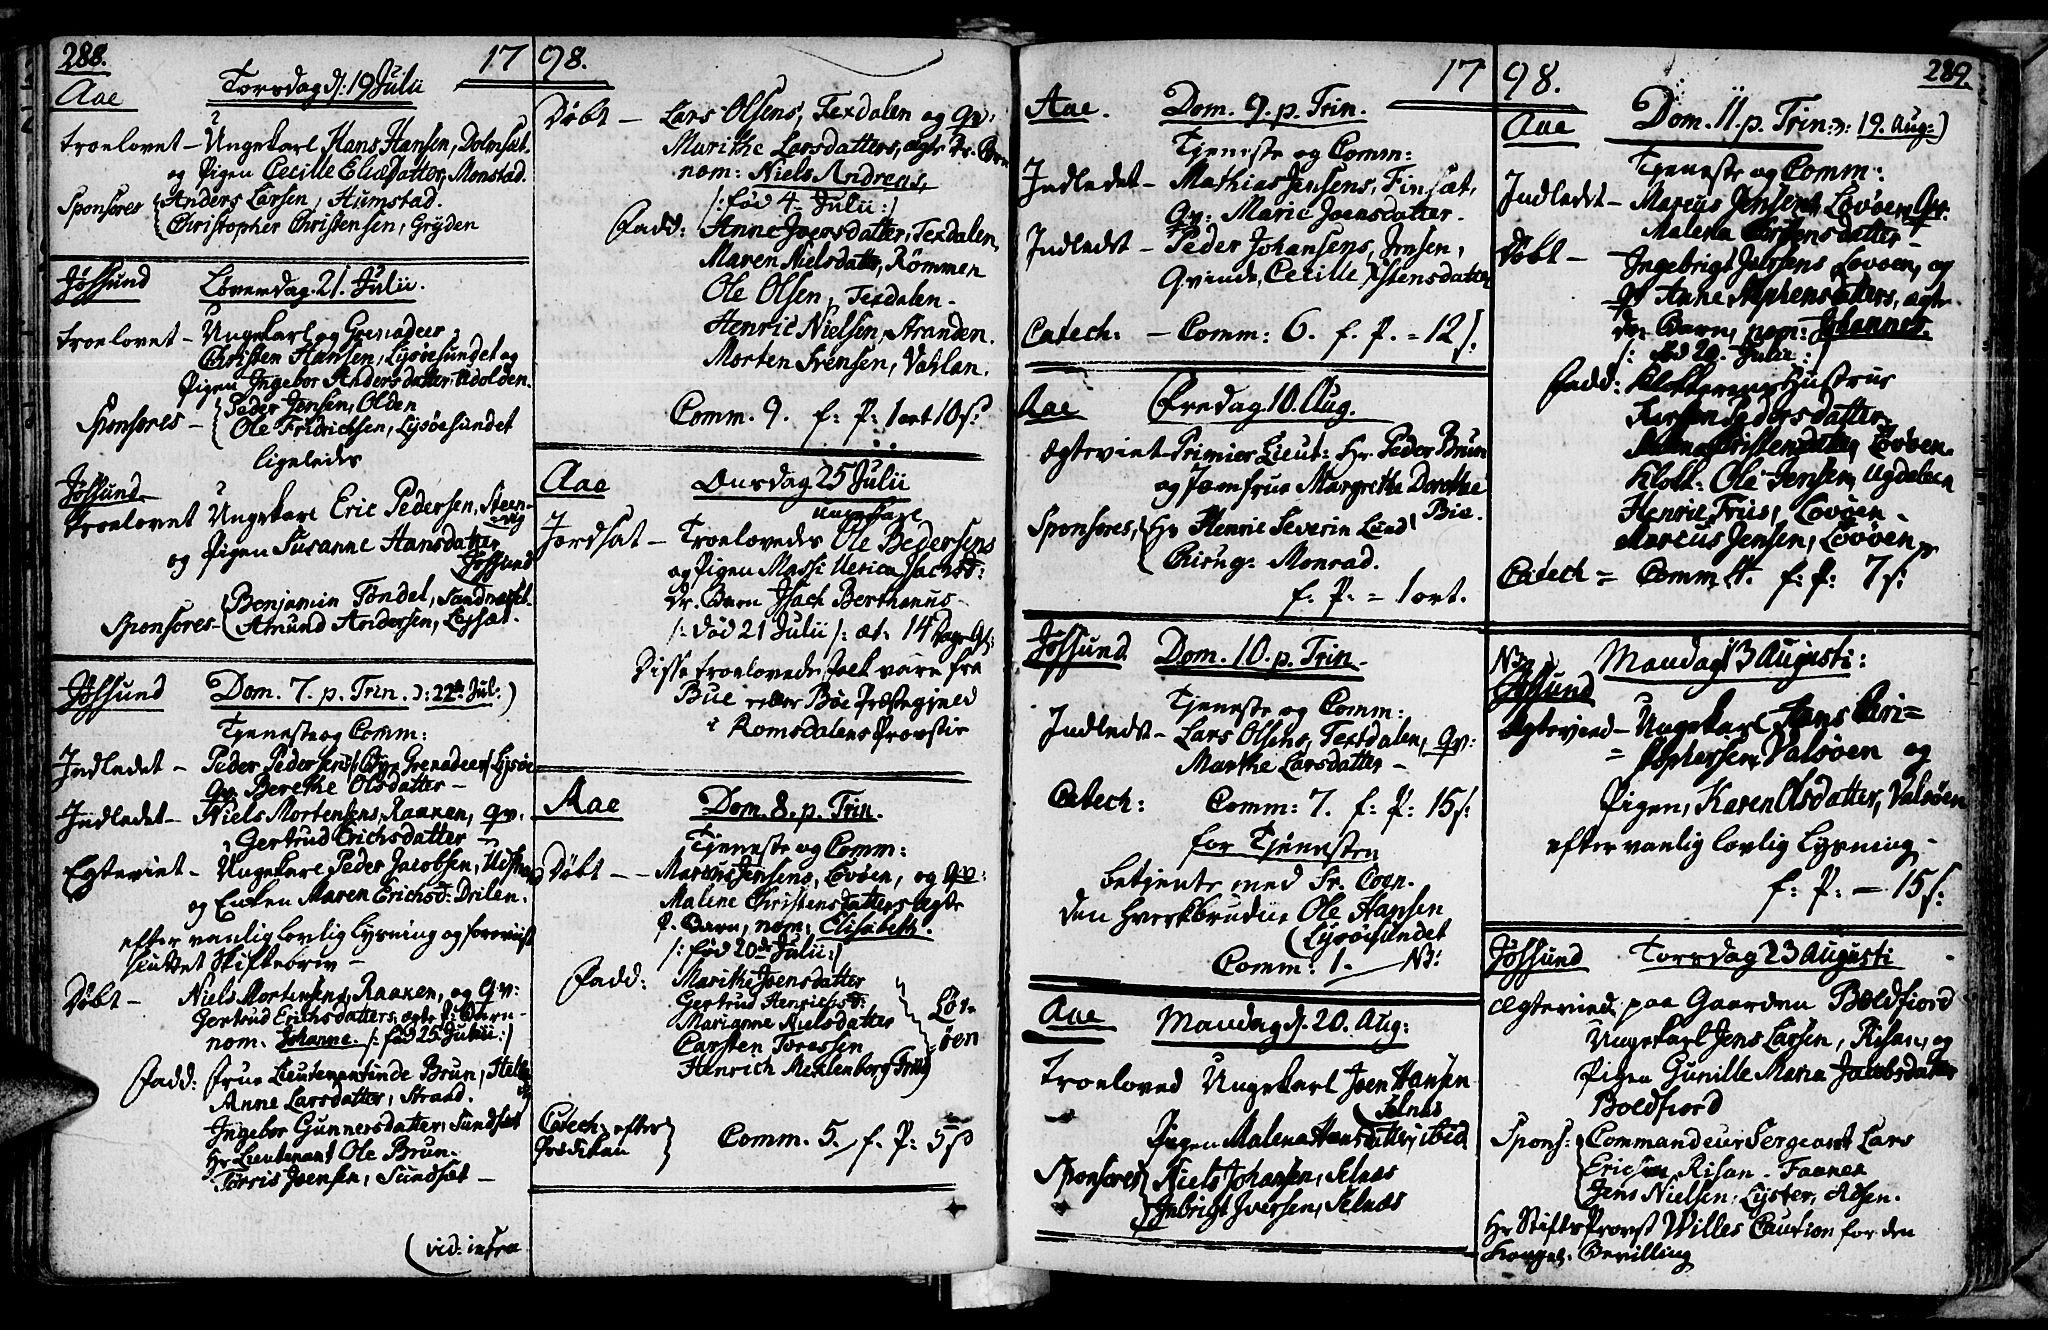 288.
1798.
Aae
Torsdag d: 19 Julii
troelovet – Ungekarl Hans Hansen, Dolmsæt.
og Pigen Cecille Eliæ datter, Monstad.
Sponsores { Anders Larsen, Humstad.
Christopher Christensen, Gryden
Jøssund
Løverdag 21. Julii.
troelovet – Ungekarl og Grenadeer
Christen Hansen, Lysøesundet og
Pigen Ingebor Andersdatter, Udolden.
Sponsores – { Peder Jensen, Olden
Ole Fridrichsen, Lysøesundet
ligeledes
Jøssund
troelovet Ungekarl Eric Pedersen, Steen-
vig
og Pigen Susanne Hansdatter
Jøssund
Sponsores – { Benjamin Tøndel, Sandnæset.
Amund Andersen, Lejsæt.
Jøssund
Dom. 7. p. Trin. ɔ: 22de Jul:)
Tjeneste og Comm:
Indledet – Peder Pedersens (Grenadeer) Lysøe
qv. Berethe Olsdatter –
Indledet – Niels Mortensens, Raaken, qv.
Gertrud Erichsdatter –
Egteviet – Ungekarl Peder Jacobsen,
og Enken Maren Erichsd: Drilen.
efter vanlig lovlig Lysning og foreviist
sluttet Skiftebrev –
Døbt – Niels Mortensens, Raaken, og qv:
Gertrud Erichsdatters ægte P. Barn –
nom. Johanne. /: fød 25 Julii :/
Fadd: Frue Lieutenantinde Brun,
Anne Larsdatter, Strand.
Ingebor Gunnersdatter, Sundsæt
Hr Lieutenant Ole Brun.
Torris Joensen, Sundsæt –
(vid: infra
Døbt – Lars Olsens, Texdalen og qv:
Marithe Larsdatters, ægte Dr. Barn
nom: Niels Andreas,
/: fød 4. Julii :/
Fadd: Anne Joensdatter, Texdalen,
Maren Nielsdatter, Rømmen
Ole Olsen, Texdalen –
Henric Nielsen, Stranden.
Morten Svensen, Vatlan.
Comm. 9. f: P: 1 ort 10 s.
Aae
Onsdag 25 Julii
Ungekarl
Jordsat – Troelovedes Ole Pedersens
og Pigen Massi Isachsd:
Dr. Barn Isach Berthanus –
/: død 21 Julii :/ æt: 14 Dage Gl:
Disse troelovede Folk vare fra
Bue eller Bøe Præstegjeld
i Romsdalens Provstie
Aae
Dom. 8. p. Trin.
Tjeneste og Comm:
Døbt – Marcus Jensens, Løvøen, og qv:
Malene Christensdatters ægte
P. Barn, nom: Elisabeth.
/: fød 20de Julii :/
Fadd: Marithe Joensdatter
Gertrud Henrichsd:
Marianne Nielsdatter
Carsten Toresen
Henrich Meklenborg Friis
Løv-
øen
Catech: efter
Prædiken } Comm. 5. f: P: 5 s
1798.
289.
Aae.
Dom. 9. p. Trin.
Tjeneste og Comm:
Indledet – Mathias Jensens, Finsæt,
Qv: Marie Joensdatter –
Indledet – Peder Johansens, Jensen,
Qvinde, Cecille Estensdatter
Catech: – Comm: 6. f. P. = 12 s:
Aae
Fredag 10. Aug.
Egteviet – Primier Lieut: Hr Peder Brun
og Jomfrue Margrethe Dorothea
Bie.
Sponsores, { Hr Henric Severin Lund
Chirug: Monrad.
f. P. = 1 ort.
Jøssund
Dom. 10. p. Trin.
Tjeneste og Comm:
Indledet – Lars Olsens, Textdalen, qv:
Marthe Larsdatter –
Catech: Comm: 7. f: P: 15 s:
for Tjenesten
betjente med Sr. Coen.
den Ole Hansen
Lysøesundet
Comm: 1. – NB:
Aae
Mandag d. 20. Aug:
Troeloved Ungekarl Joen Hansen
Selnæs
Pigen Malena Hansdatter, ibid
Sponsores { Niels Johansen, Selnæs
Inbrigt Iversen, Selnæs
Aae
Dom. 11. p. Trin: ɔ: 19. Aug:)
Tjeneste og Comm:
Indledt – Marcus Jensens, Løvøen, Qv:
Malena Christensdatter –
Døbt – Ingebrigt Løvøen, og
qv Anne Stephensdatters, ægte
Dr. Barn, nom: Johannes.
/: fød 20. Julii :/
Fadd: Klokkerens Hustrue
Kirsten Pedersdatter
Løvøen.
Klokk: Ole Jensen, Ugdalen
Henric Friis, Løvøen.
Marcus Jensen, Løvøen,
Catech = Comm f: P: 7 s:
NB
Jøssund
Mandag 13 Augusti:
Egteviet – Ungekarl Hans Chri=
= stophersen, Valsøen og
Pigen, Karen Olsdatter, Valsøen
efter vanlig lovlig Lysning –
f: P: – 15 s:
Jøssund
Torsdag 23 Augusti
Ægteviet paa Gaarden Boldfiord
Ungekarl Jens Larsen, Risan, og
Pigen Gunille Maria Jacobsdatter
Boldfiord
Spons: { Commandeur Sergeant Lars
Ericsen Risan –
Jens Nielsen, Lyster,
Hr StiftsProvst Willes Caution for den
Kongel: Bevilling